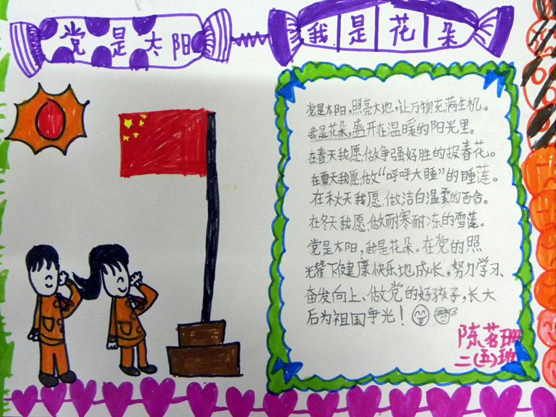 党是太阳
我是花朵
党是太阳,照亮大地,让万物充满生机。
我是花朵,盛开在温暖的阳光里。
在春天我愿做争强好胜的报春花。
在夏天我愿做“呼呼大睡”的睡莲。
在秋天我愿做洁白温柔的百合。
在冬天我愿做耐寒耐冻的雪莲。
党是太阳,我是花朵。在党的照
光耀下健康快乐地成长,努力学习、
奋发向上,做党的好孩子,长大
后为祖国争光!
陈茗珊
二(五)班